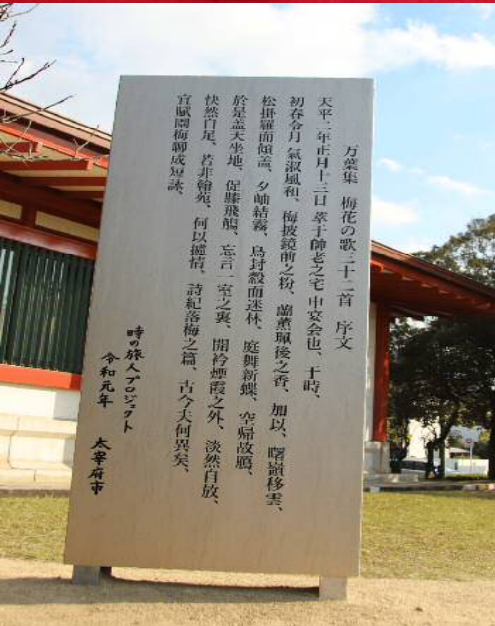 万葉集　梅花の歌三十二首　序文
天平二年正月十三日　萃于帥老之宅　申宴会也、于時、
初春令月　氣淑風和、梅披鏡前之粉、蘭薫珮後之香、加以、曙嶺移雲、
松掛羅而傾盖、夕岫結霧、鳥封縠而迷林、庭舞新蝶、空帰故鴈、
於是盖天坐地、促膝飛觴、忘言一室之裏、開衿煙霞之外、淡然自放、
快然自足、若非翰苑、何以攄情、詩紀落梅之篇、古今夫何異矣、
宜賦園梅聊成短詠、
時の旅人プロジェクト
令和元年　太宰府市